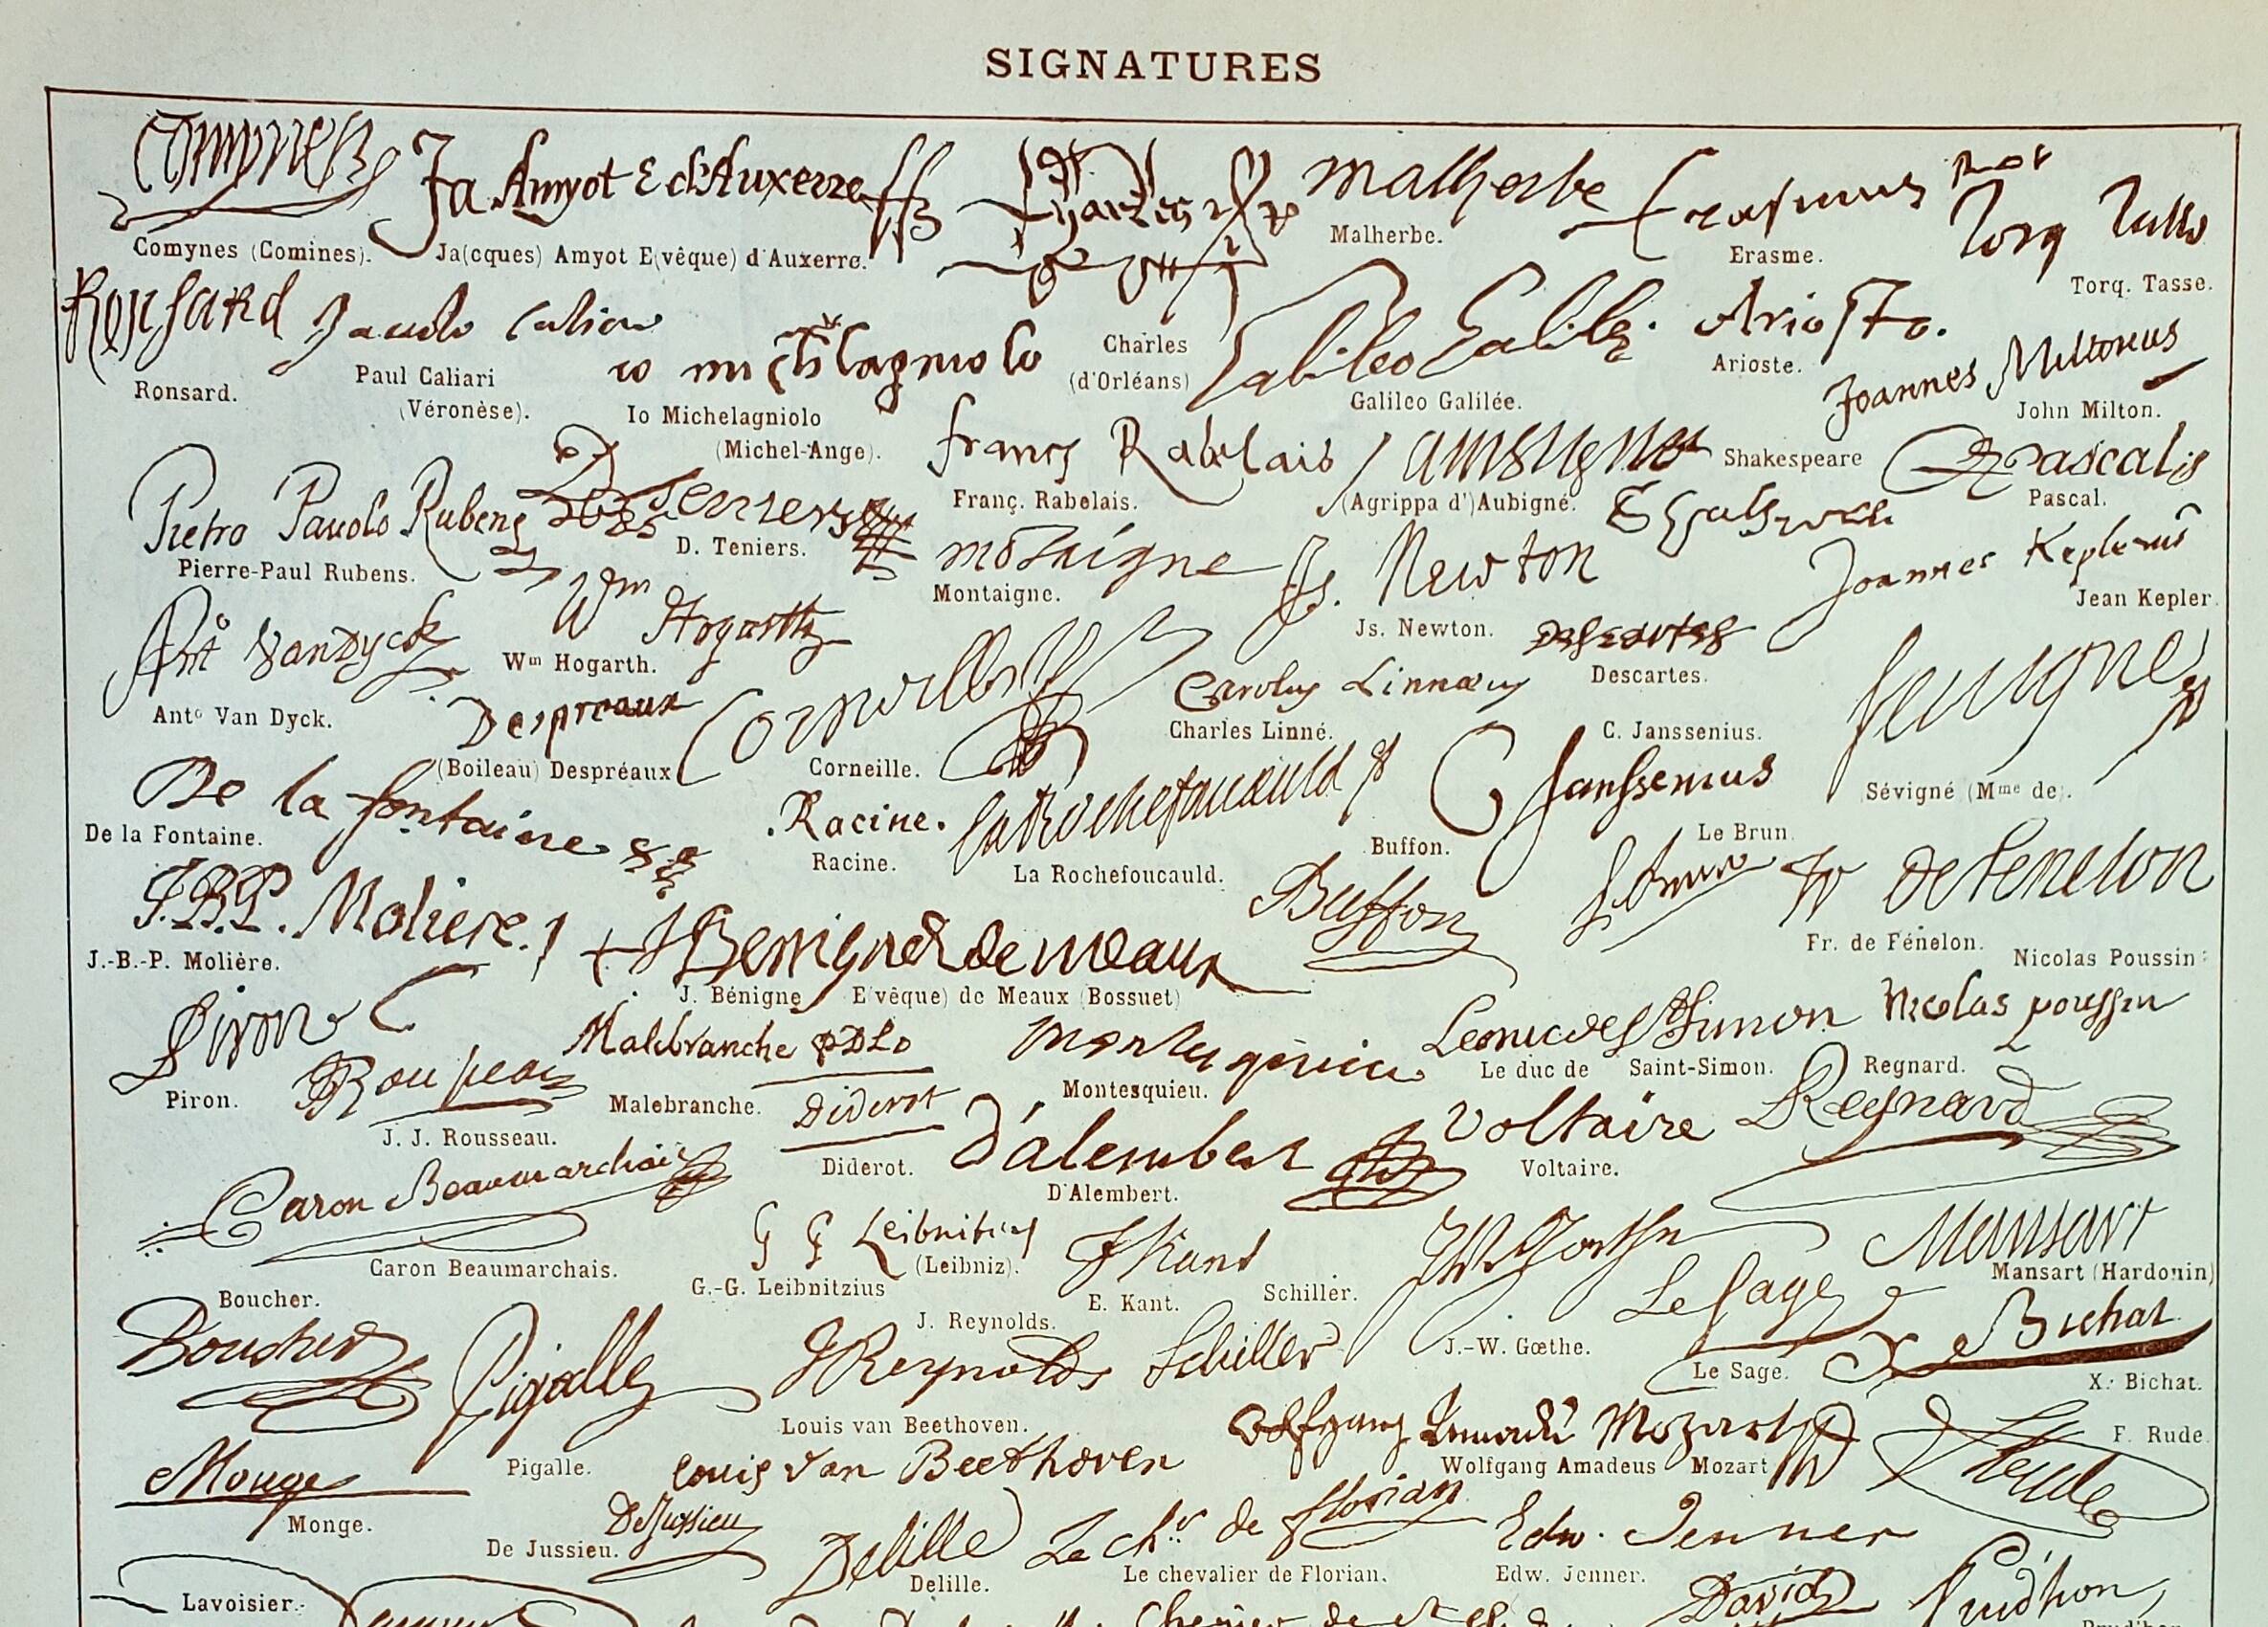 SIGNATURES
Comynes
Ja Amyot E d'Auxerre
Charles
Malherbe
Erasmus Rot
Torq Tasso
Comynes (Comines).
Ja(cques) Amyot E(vêque) d'Auxerre.
Malherbe.
Erasme.
Torq. Tasse.
Ronsard
Paulo Caliari
io michelagniolo
Charles
(d'Orléans)
Galileo Galilei.
Ariosto.
Joannes Miltonius
Ronsard.
Paul Caliari
(Véronèse).
Io Michelagniolo
(Michel-Ange).
Galileo Galilée.
Arioste.
John Milton.
Pietro Pauolo Rubens
D Teniers
Francs Rabelais
Shakespeare
Pascalis
Pierre-Paul Rubens.
D. Teniers.
Franç. Rabelais.
(Agrippa d')Aubigné.
Pascal.
Ant° Van Dyck
Wm Hogarth
montaigne
Js. Newton
Joannes Keplerus
Anto Van Dyck.
Wm Hogarth.
Montaigne.
Js. Newton.
Jean Kepler.
Despreaux
Corneille
Carolus Linnæus
Descartes
Sevigne
(Boileau) Despréaux
Corneille.
Charles Linné.
Descartes.
C. Janssenius.
Sévigné (Mme de).
De la fontaine
.Racine.
la Rochefoucauld
C Janssenius
De la Fontaine.
Racine.
La Rochefoucauld.
Buffon.
Le Brun.
J.B.P. Moliere.
+ J Benigne E de Meaux
Buffon
Le Brun
Fr de Fenelon
J.-B.-P. Molière.
J. Bénigne E(vêque) de Meaux (Bossuet)
Fr. de Fénelon.
Nicolas Poussin.
Piron
Rousseau
Malebranche PDLO
Montesquieu
Le duc de St Simon
Nicolas poussin
Piron.
J. J. Rousseau.
Malebranche.
Montesquieu.
Le duc de Saint-Simon.
Regnard.
Caron Beaumarchais
Diderot
D'alembert
Voltaire
Regnard
Caron Beaumarchais.
Diderot.
D'Alembert.
Voltaire.
G G Leibnitius
Kant
JWGoethe
Mansart
G.-G. Leibnitzius
(Leibniz).
E. Kant.
Schiller.
J.-W. Gœthe.
Le Sage
Mansart (Hardouin)
Boucher.
J. Reynolds.
Le Sage.
X. Bichat
X. Bichat.
Boucher
Pigalle
J Reynolds
Schiller
Pigalle.
Louis van Beethoven.
Wolfgang Amadè Mozart
F. Rude.
Monge
louis van Beethoven
Wolfgang Amadeus Mozart
F Rude
Monge.
De Jussieu
Delille
Le chr. de florian
Edw. Jenner
De Jussieu.
Delille.
Le chevalier de Florian.
Edw. Jenner.
Lavoisier.
David
Prudhon